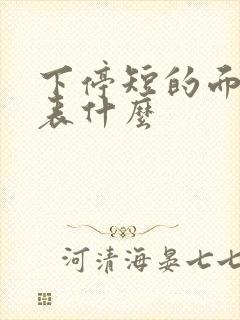 下停短的而
表什麼
河清海晏七七